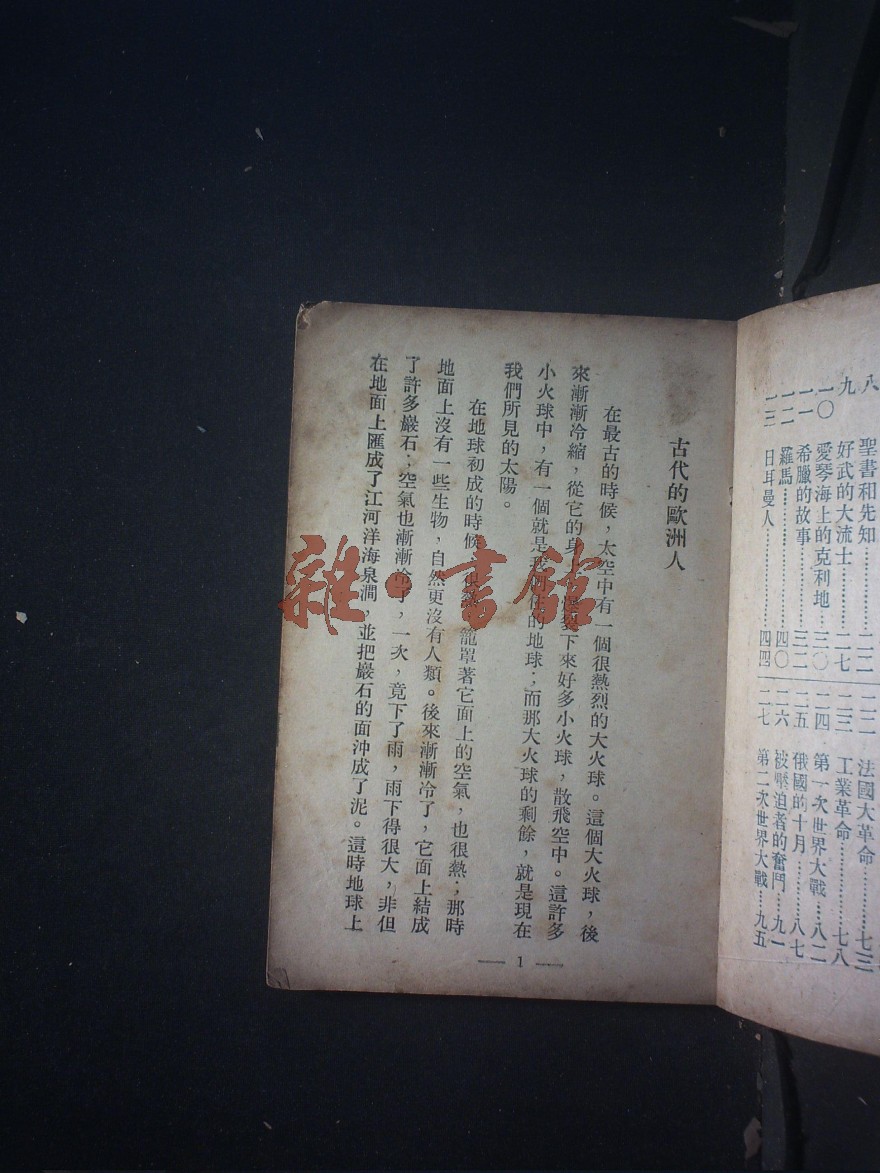 八 聖書和先知……二二
九 好武的大流士……二七
一〇 愛琴海上的克利地…三〇
一一 希臘的故事……三二
一二 羅馬……四〇
一三 日耳曼人……四四
二二 法國大革命……七三
二三 工業革命……七八
二四 第一次世界大戰…八二
二五 俄國的十月…八七
二六 被壓迫者的奮鬥…九一
二七 第二次世界大戰…九五
古代的歐洲人
在最古的時候，太空中有一個很熱烈的大火球。這個大火球，後
來漸漸冷縮，從它的身 爆裂下來好多小火球，散飛空中。這許多
小火球中，有一個就是我們住的地球；而那大火球的剩餘，就是現在
我們所見的太陽。
在地球初成的時候，很熱，籠罩著它面上的空氣，也很熱；那時
地面上沒有一些生物，自然更沒有人類。後來漸漸冷了，它面上結成
了許多巖石；空氣也漸漸冷了，一次，竟下了雨，雨下得很大，非但
在地面上匯成了江河洋海泉澗，並把巖石的面沖成了泥。這時地球上
— 1 —
雜·書館